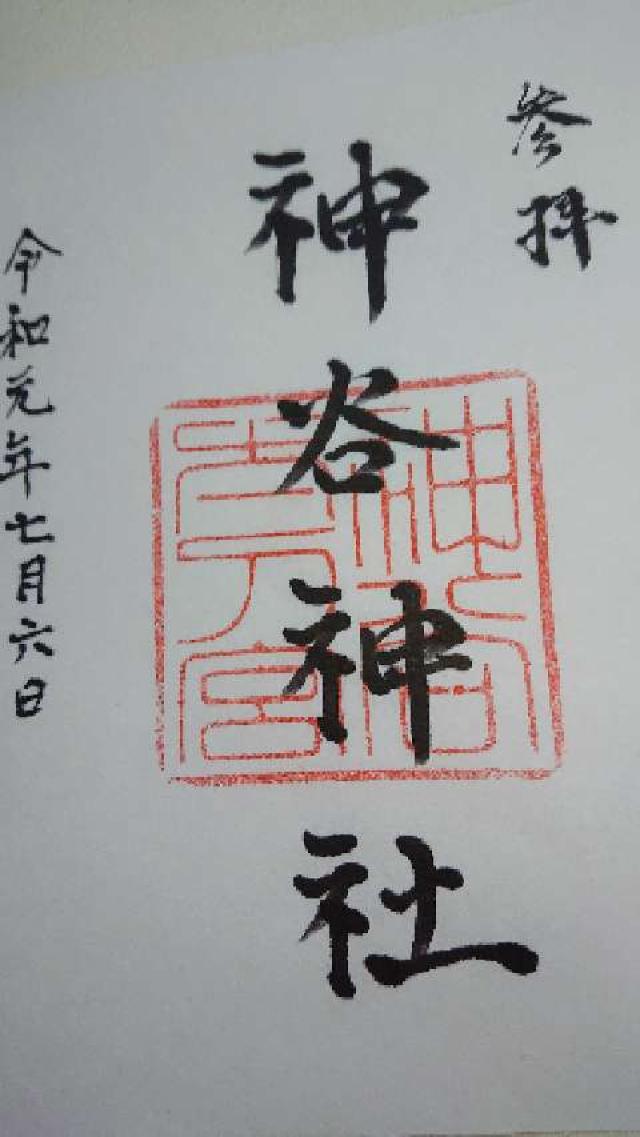 参拝
神谷神社
令和元年七月六日